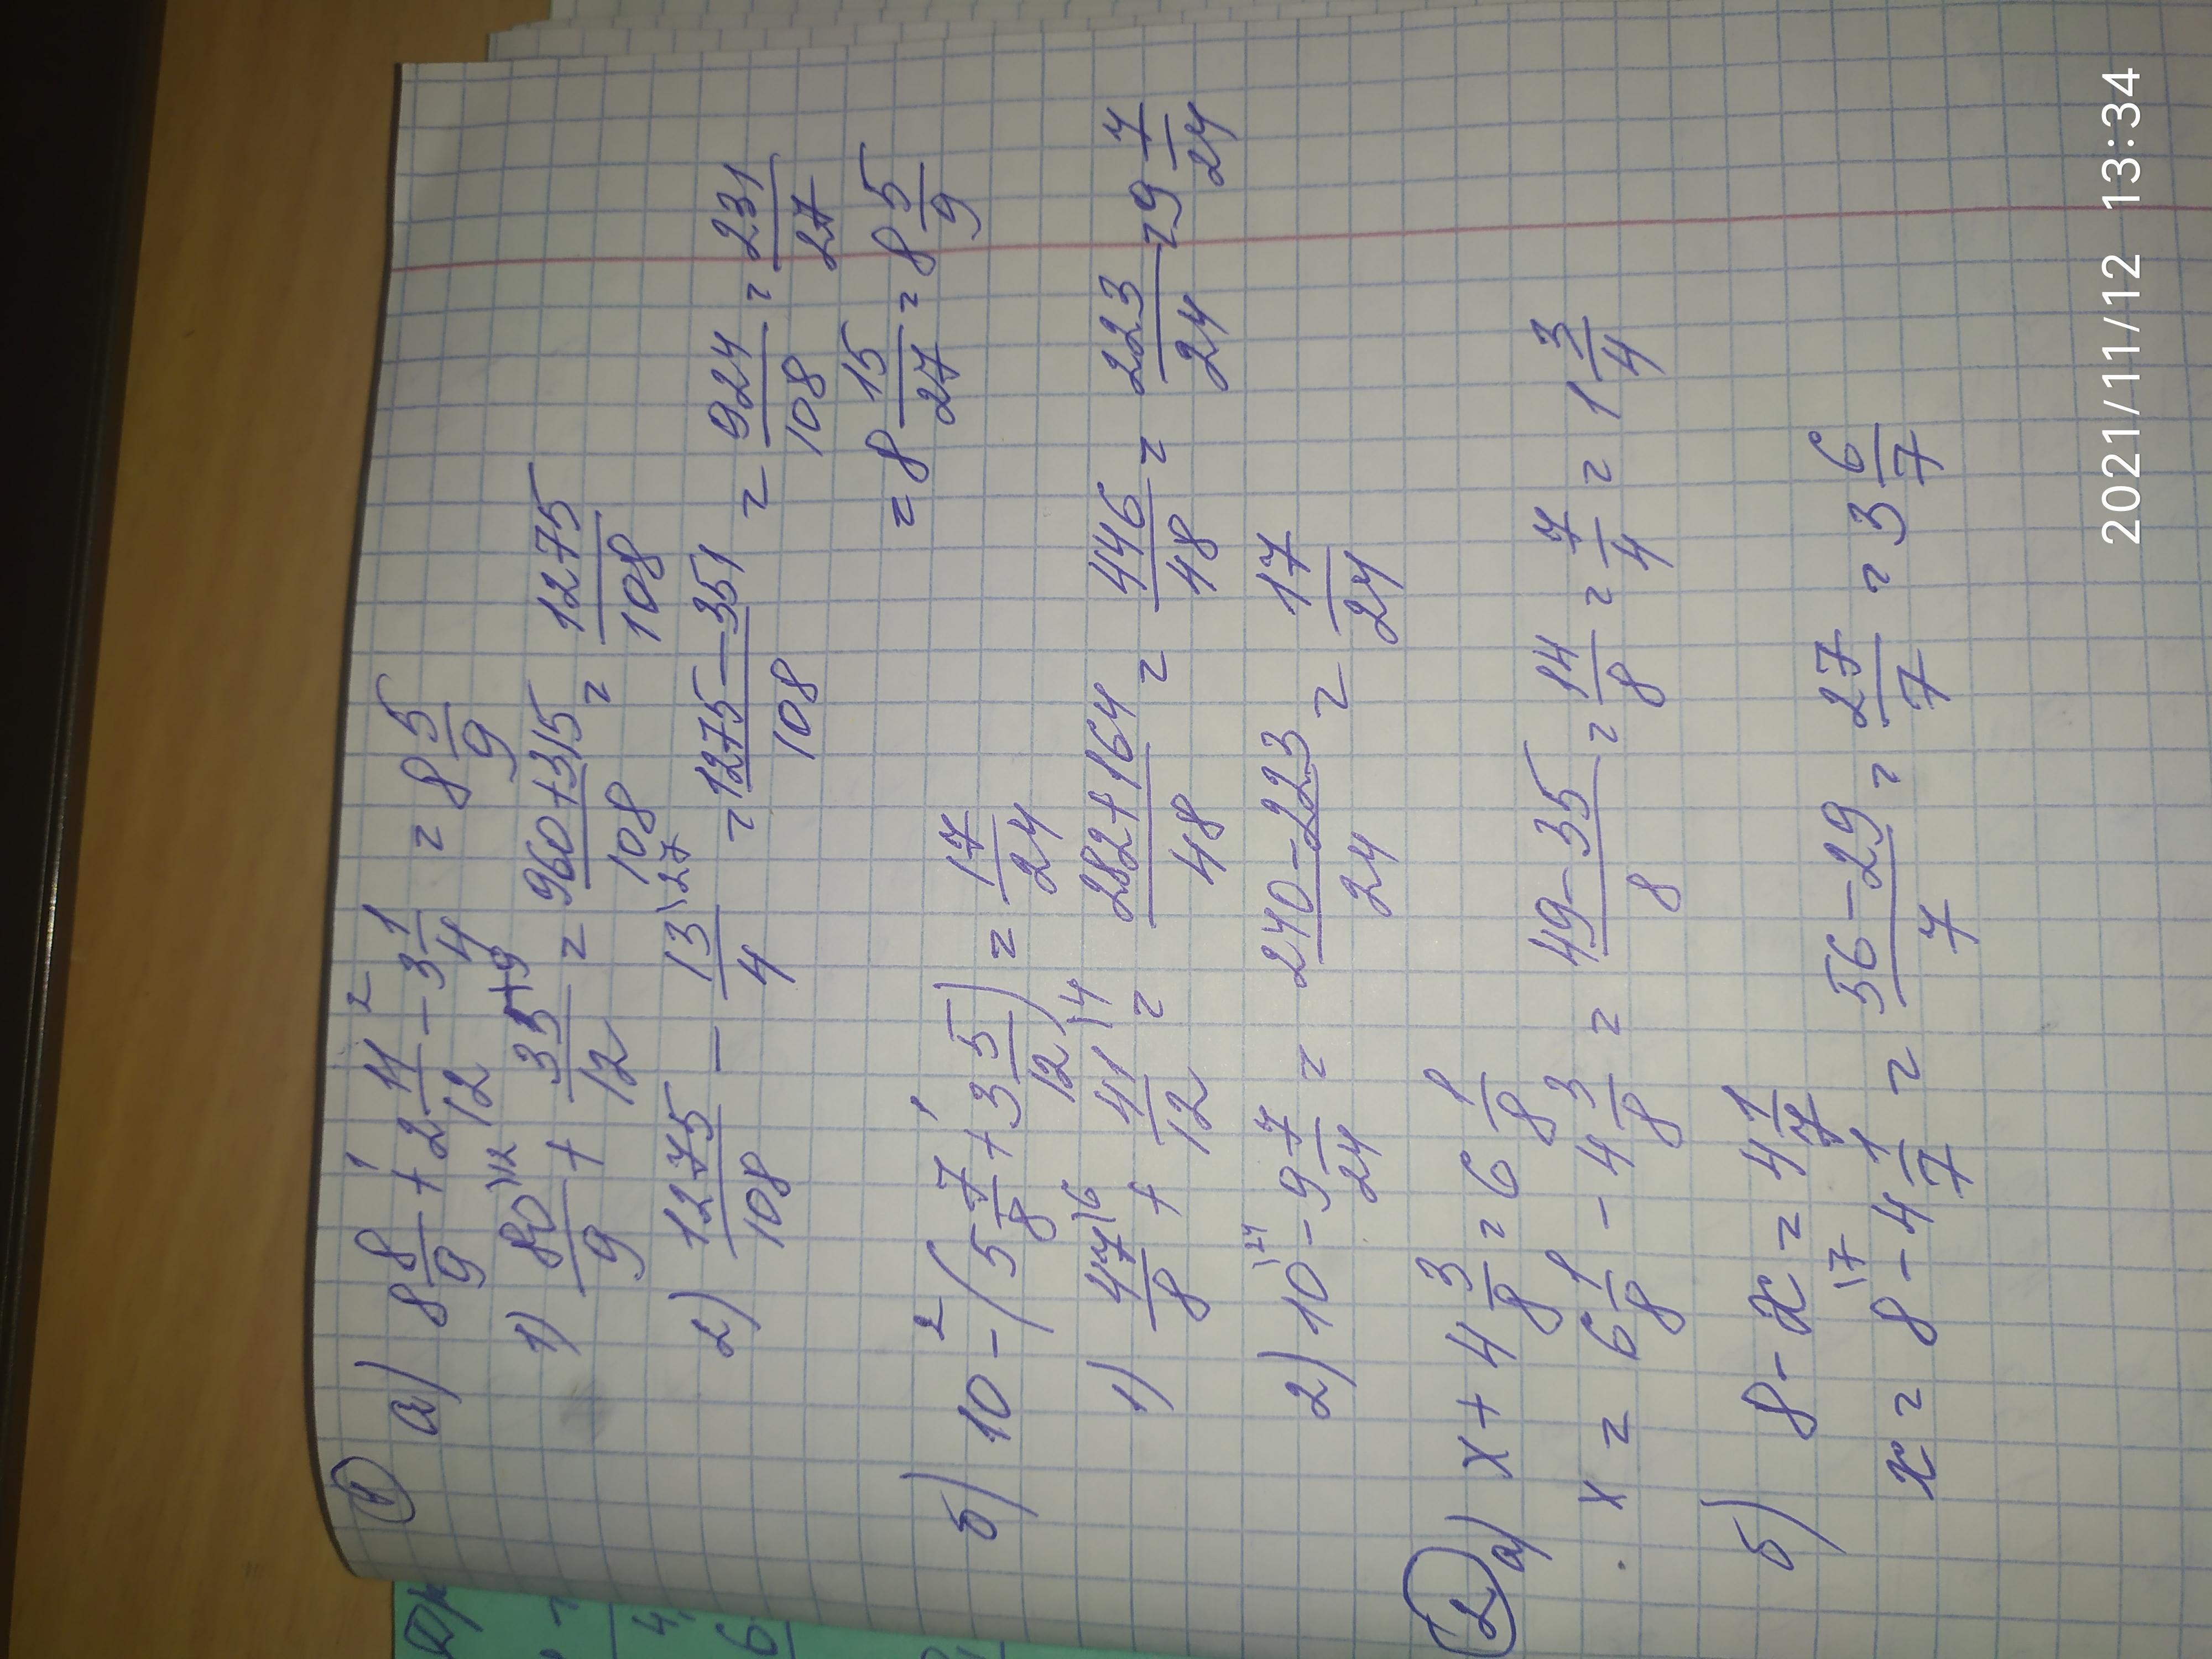 ① а) 8 8/9 + 2 11/12 - 3 1/4 = 8 5/9
1 2
1) 80\12/9 + 35\9/12 = 960+315/108 = 1275/108
2) 1275/108 - 13\27/4 = 1275-351/108 = 924/108 = 231/27
= 8 15/27 = 8 5/9
б) 10 - (5 7/8 + 3 5/12) = 17/24
2 1
1) 47\6/8 + 41\4/12 = 282+164/48 = 446/48 = 223/24 = 9 7/24
2) 10\24 - 9 7/24 = 240-223/24 = 17/24
② а) x + 4 3/8 = 6 1/8
x = 6 1/8 - 4 3/8 = 49-35/8 = 14/8 = 7/4 = 1 3/4
б) 8 - x = 4 1/7
x = 8\7 - 4 1/7 = 56-29/7 = 27/7 = 3 6/7
2021/11/12 13:34